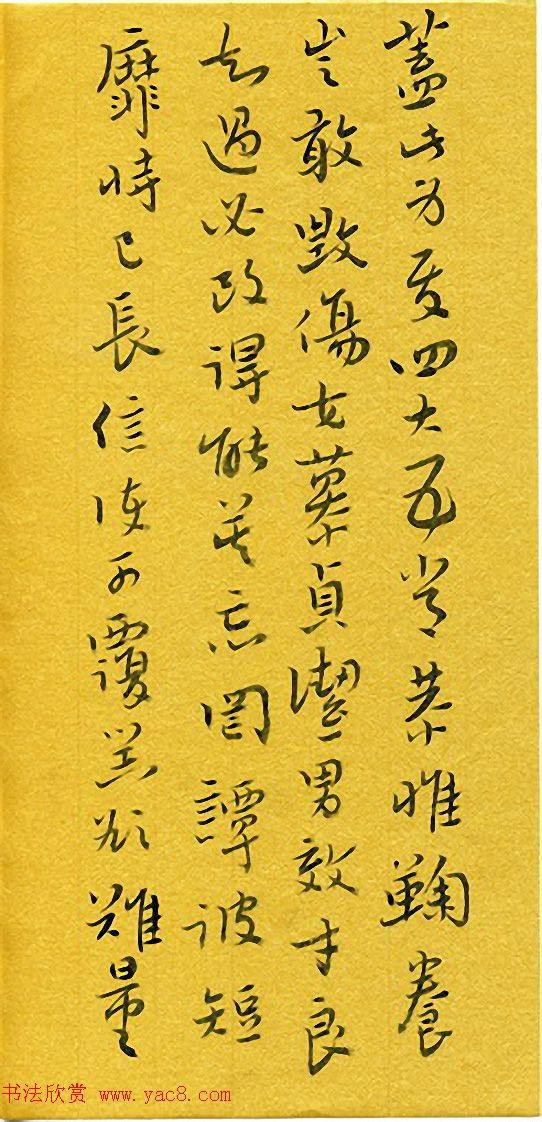 蓋此身發四大五常恭惟鞠養
豈敢毀傷女慕貞潔男效才良
知過必改得能莫忘罔談彼短
靡恃己長信使可覆器欲難量
书法欣赏 www.yac8.com